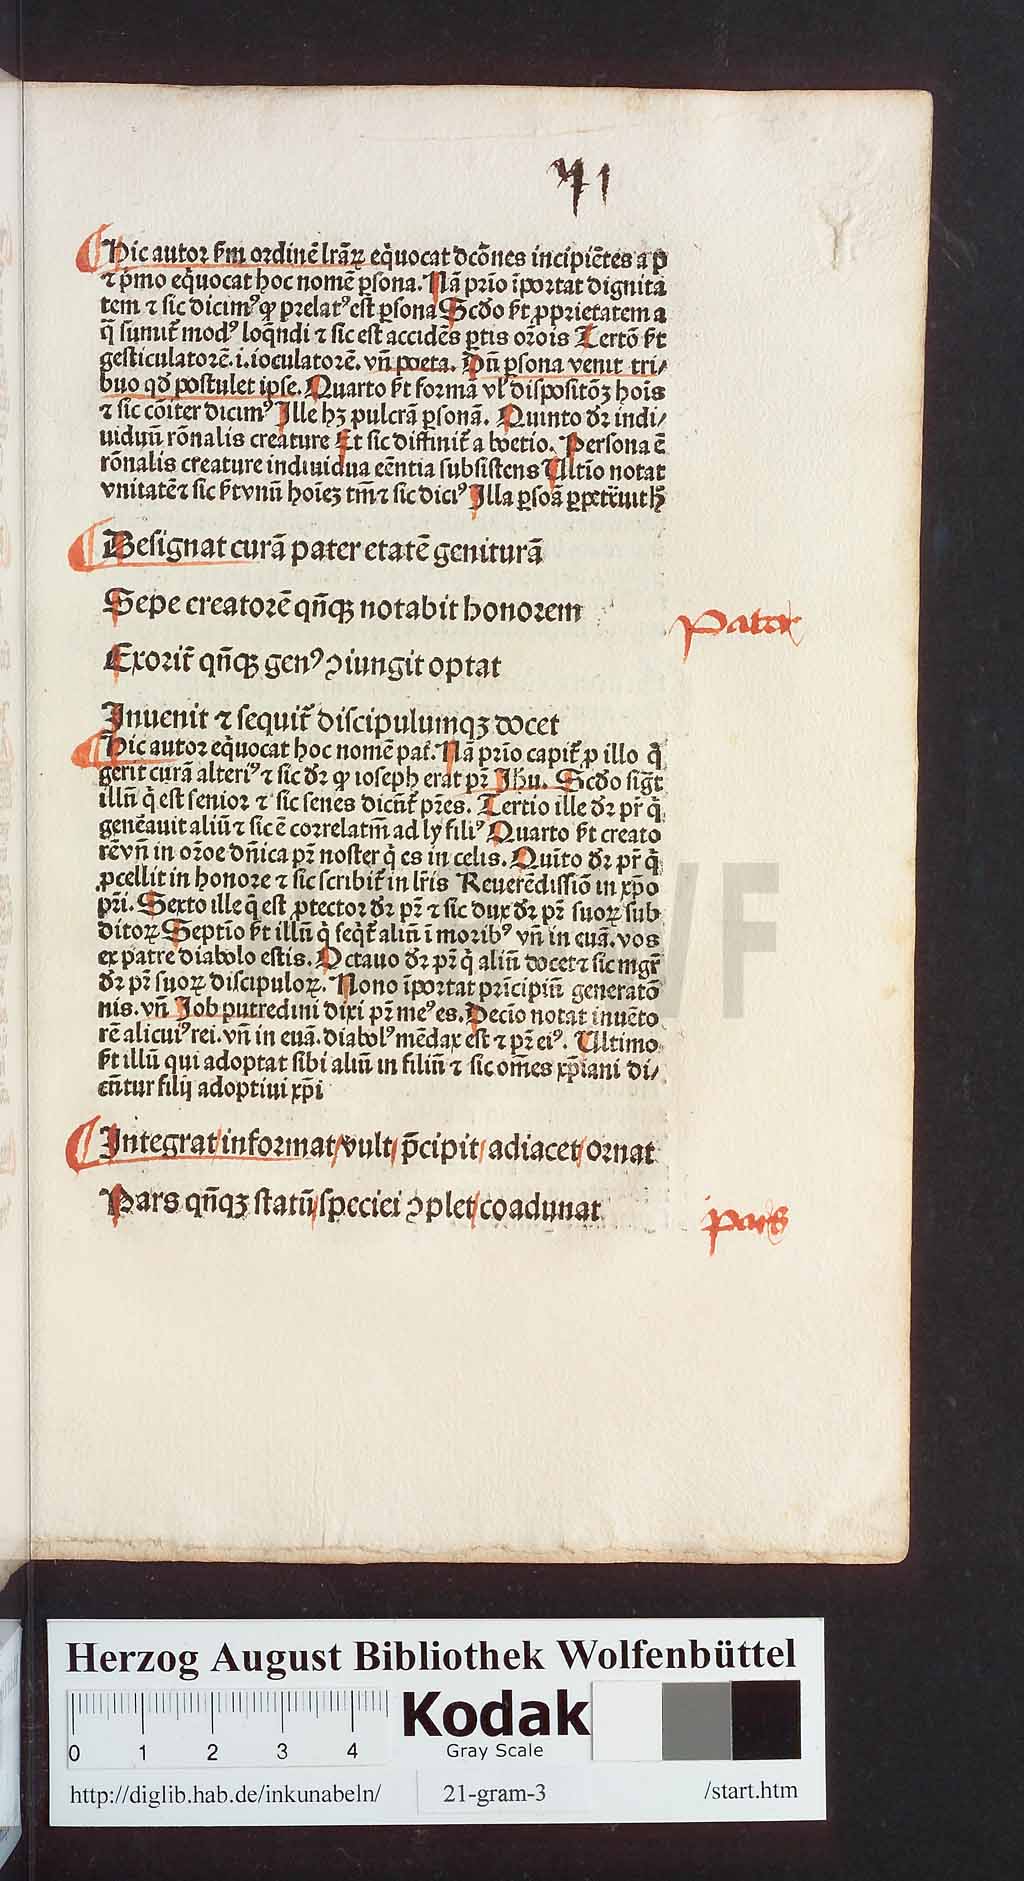 41
Hic autor ẜm ordinē lr̄aꝝ eq̇uocat dc̄ōnes incipiētes a p
⁊ pͥmo eq̇uocat hoc nomē ꝑsona. Nā prīo īportat dignita
tem ⁊ sic dicimꝰ ꝙ prelatꝰ est ꝑsona Scd̄o ẜt ꝓprietatem a
q̄ sumit̄ modꝰ loq̄ndi ⁊ sic est accidēs ꝑtis orōis Tertō ẜt
gesticulatorē.i.ioculatorē. vn̄ poeta. Dn̄ ꝑsona venit tri/
buo qd̄ postulet ipse. Quarto ẜt formā vl̄ dispositōꝫ hoīs
⁊ sic cōiter dicimꝰ Ille hꝫ pulcrā ꝑsonā. Quinto dr̄ indi/
uiduū rōnalis creature Et sic diffinit̄ a boetio. Persona ē
rōnalis creature indiuidua eēntia subsistens Ultīo notat
vnitatē ⁊ sic ẜt vnū hoīeꝫ tm̄ ⁊ sic dicīꝰ Illa ꝑsoā
Designat curā pater etatē geniturā
Sepe creatorē qn̄qꝫ notabit honorem
Exorit̄ qn̄qꝫ genꝰ ꝯiungit optat
Inuenit ⁊ sequit̄ discipulumqꝫ docet
Pater
Hic autor eq̇uocat hoc nomē pat̄. Nā prīo capit̄ ꝓ illo q̇
gerit curā alteriꝰ ⁊ sic dr̄ ꝙ ioseph erat pr̄ Jh̄u. Scd̄o sigt̄
illū q̇ est senior ⁊ sic senes dicūt̄ pr̄es. Tertio ille dr̄ pr̄ q̇
genēauit aliū ⁊ sic ē correlatm̄ ad ly filiꝰ Quarto ẜt creato
rē vn̄ in orōe dn̄ica pr̄ noster q̇ es in celis. Quīto dr̄ pr̄ q̇
p̱cellit in honore ⁊ sic scribit̄ in lr̄is Reuerēdissiō in xp̄o
pr̄i. Sexto ille q̇ est ꝓtector dr̄ pr̄ ⁊ sic dux dr̄ pr̄ suoꝝ sub
ditoꝝ Septio ẜt illū q̇ seq̄t̄ aliū ī moribꝰ vn̄ in euā. vos
ex patre diabolo estis. Octauo dr̄ pr̄ q̇ aliū docet ⁊ sic mgr̄
dr̄ pr̄ suoꝝ discipuloꝝ. Nono īportat prīcipiū generatō
nis. vn̄ Job putredini dixi pr̄ meꝰ es. Decīo notat inuēto
rē alicuiꝰ rei. vn̄ in euā. diabolꝰ mēdax est ⁊ pr̄ eiꝰ. Ultimo
ẜt illū qui adoptat sibi aliū in filiū ⁊ sic om̄es xp̄iani di/
cn̄tur filij adoptiui xp̄i
Integrat/informat/vult/p̄cipit/adiacet/ornat
Pars qn̄qꝫ statū/speciei ꝯplet/coadunat
pars
Herzog August Bibliothek Wolfenbüttel
0 1 2 3 4
Kodak
Gray Scale
http://diglib.hab.de/inkunabeln/ 21-gram-3 /start.htm